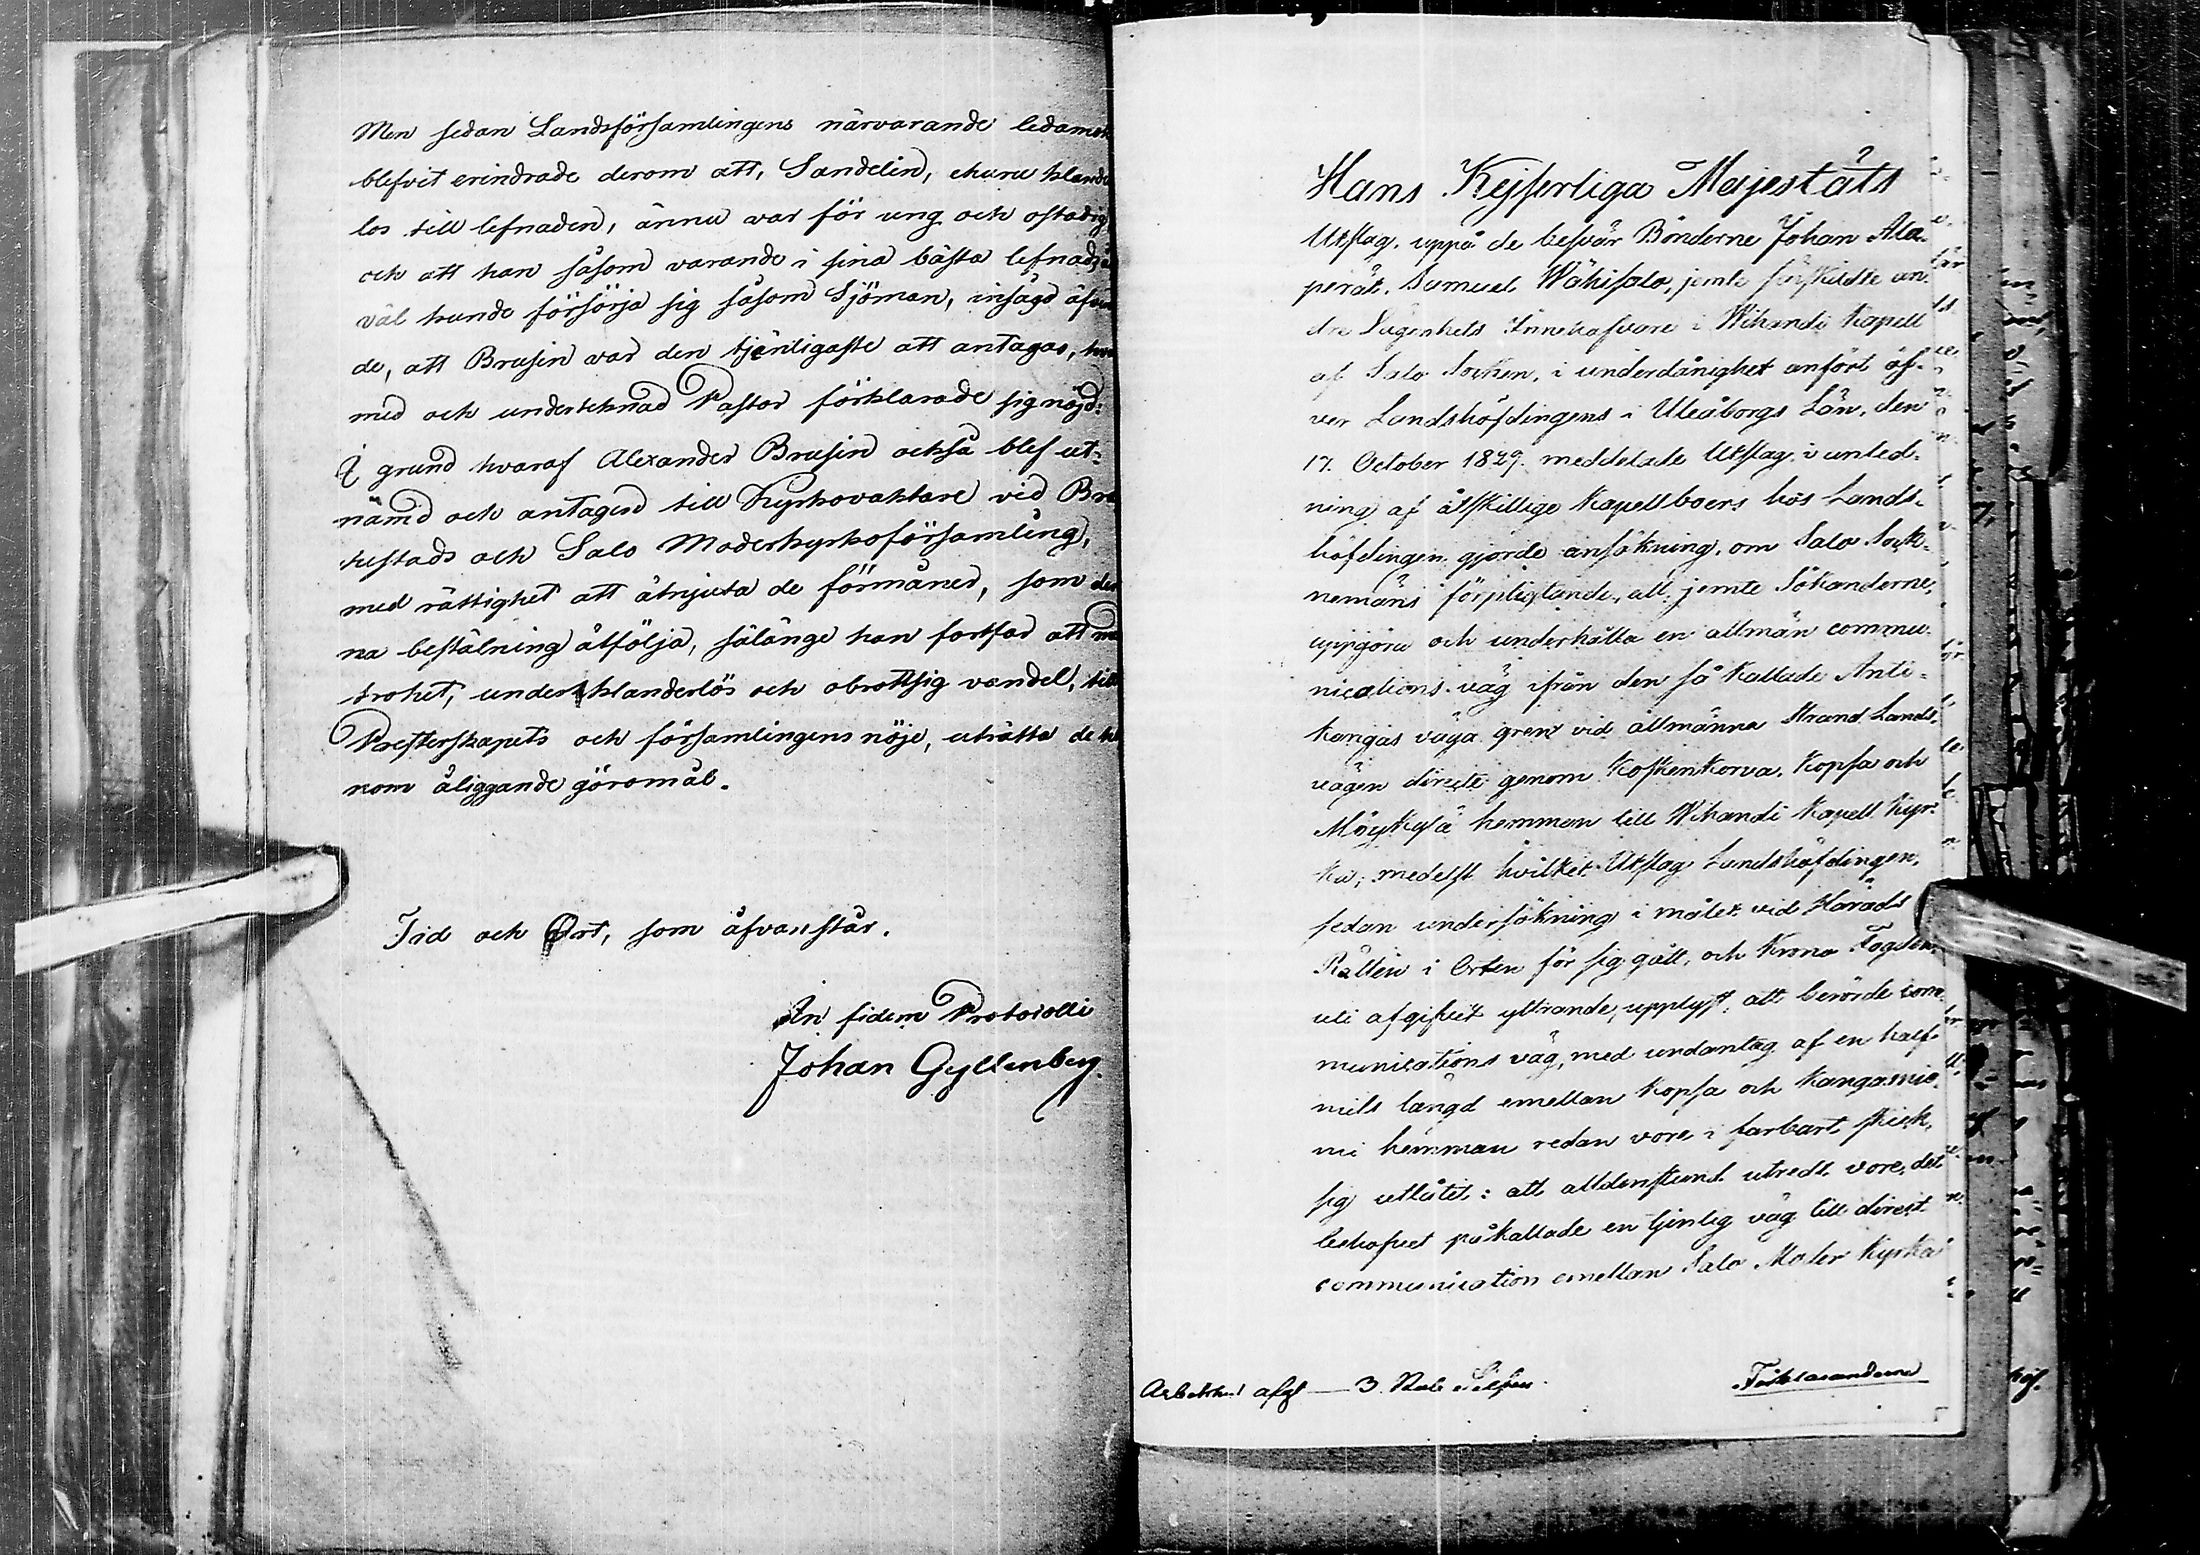 Men sedan Landsförsamlingens närvarande ledamöt
blefvit erindrade derom att, Sandelin, ehuru klande
los till lefnaden, ännu var för ung och ostadig
och att han såsom varande i sina bästa lefnadså
väl kunde försörja sig såsom Sjöman, insågo äfven
de, att Brusin var den tjenligaste att antagas, hvar
med och undertecknad Pastor förklarade sig nöjd:
I grund hvaraf Alexander Brusin också blef ut-
nämd och antagen till Kyrkovaktare vid Bra
hestads och Salo Moderkyrkoförsamling,
med rättighet att åtnjuta de förmåner, som den
na beställning åtfölja, sålänge han fortfar att med
trohet, under klanderlös och obrottslig vandel, till
Presterskapets och församlingens nöje, uträtta de ho
nom åliggande göromål.
Tid och Ort, som åfvanstår.
In fidem Protocolli
Johan Gyllenberg.
Hans Kejserliga Majestäts
Utslag, uppå de besvär Bönderne Johan Ala-
perät, Samuel Wähisalo, jemte särskildte an-
dra Lägenhets Innehafvare i Wihandi Kapell
af Salo Socken, i underdånighet anfört öf-
ver Landshöfdingens i Uleåborgs Län, den
17. October 1829. meddelade Utslag i anled-
ning af åtskillige Kapellboers hos Lands-
höfdingen gjorde ansökning, om Salo Sock-
nemäns förpligtande, att jemte Sökanderne,
uppgöra och underhålla en allmän commu-
nications väg ifrån den så kallade Anti-
kangas väga gren vid allmänna Strand Lands-
vägen directe genom Koskenkorva, Kopsa och
Möykylä hemman till Wihandi Kapell Kyr-
ka; medelst hvilket Utslag Landshöfdingen,
sedan undersökning i målet vid Härads
Rätten i Orten för sig gått, och Krono Fogden,
uti afgifvit yttrande, upplyst, att berörde com-
munications väg, med undantag af en half
mils längd emellan Kopsa och Kangasnie-
mi hemman redan vore i farbart skick,
sig utlåtit: att alldenstund utredt vore, det
behofvet påkallade en tjenlig väg till direct
communication emellan Salo Moder Kyrka
3 Rub Silfver
Förklaranderne